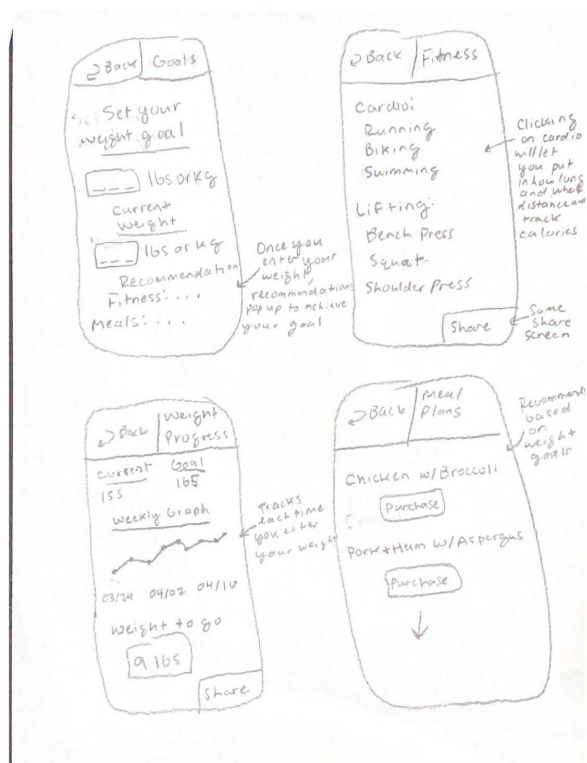 Back Goals
Set your
weight goal
___ lbs or kg
Current
Weight
___ lbs or kg
Recommendation
Fitness: ...
Meals: ...
Once you
enter your
weight,
recommendations
pop up to achieve
your goal
Back Fitness
Cardio:
Running
Biking
Swimming
Lifting:
Bench Press
Squat
Shoulder Press
Share
Clicking
on cardio
will let
you put
in how long
and what
distance and
track
calories
Same
share
screen
Back Weight
Progress
Current Goal
155 165
Weekly Graph
03/24 04/02 04/10
Weight to go
9 lbs
Share
Tracks
each time
you enter
your weight
Back Meal
Plans
Chicken w/Broccoli
Purchase
Pork + Ham w/Aspergus
Purchase
Recommends
based
on
weight
goals